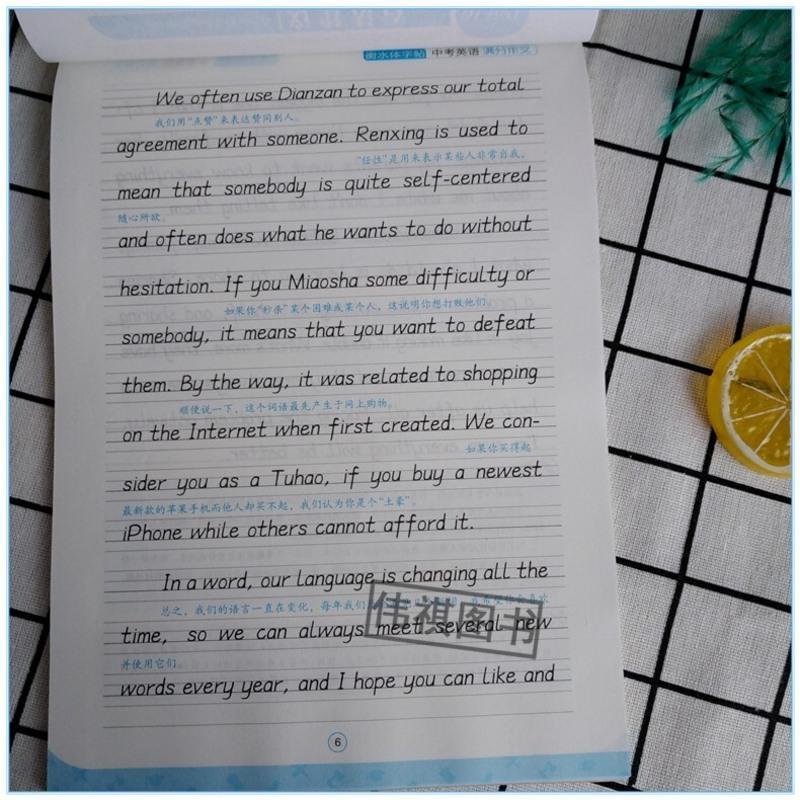 衡水体字帖 中考英语 满分作文
We often use Dianzan to express our total
我们用“点赞”来表达赞同别人。
agreement with someone. Renxing is used to
“任性”是用来表示某些人非常自我，
mean that somebody is quite self-centered
随心所欲。
and often does what he wants to do without
hesitation. If you Miaosha some difficulty or
如果你“秒杀”某个困难或某个人，这说明你想打败他们。
somebody, it means that you want to defeat
them. By the way, it was related to shopping
顺便说一下，这个词语最先产生于网上购物。
on the Internet when first created. We con-
如果你买得起
sider you as a Tuhao, if you buy a newest
最新款的苹果手机而他人却买不起，我们认为你是个“土豪”。
iPhone while others cannot afford it.
In a word, our language is changing all the
总之，我们的语言一直在变化，每年我们
time, so we can always meet several new
伟祺图书
并使用它们。
words every year, and I hope you can like and
6